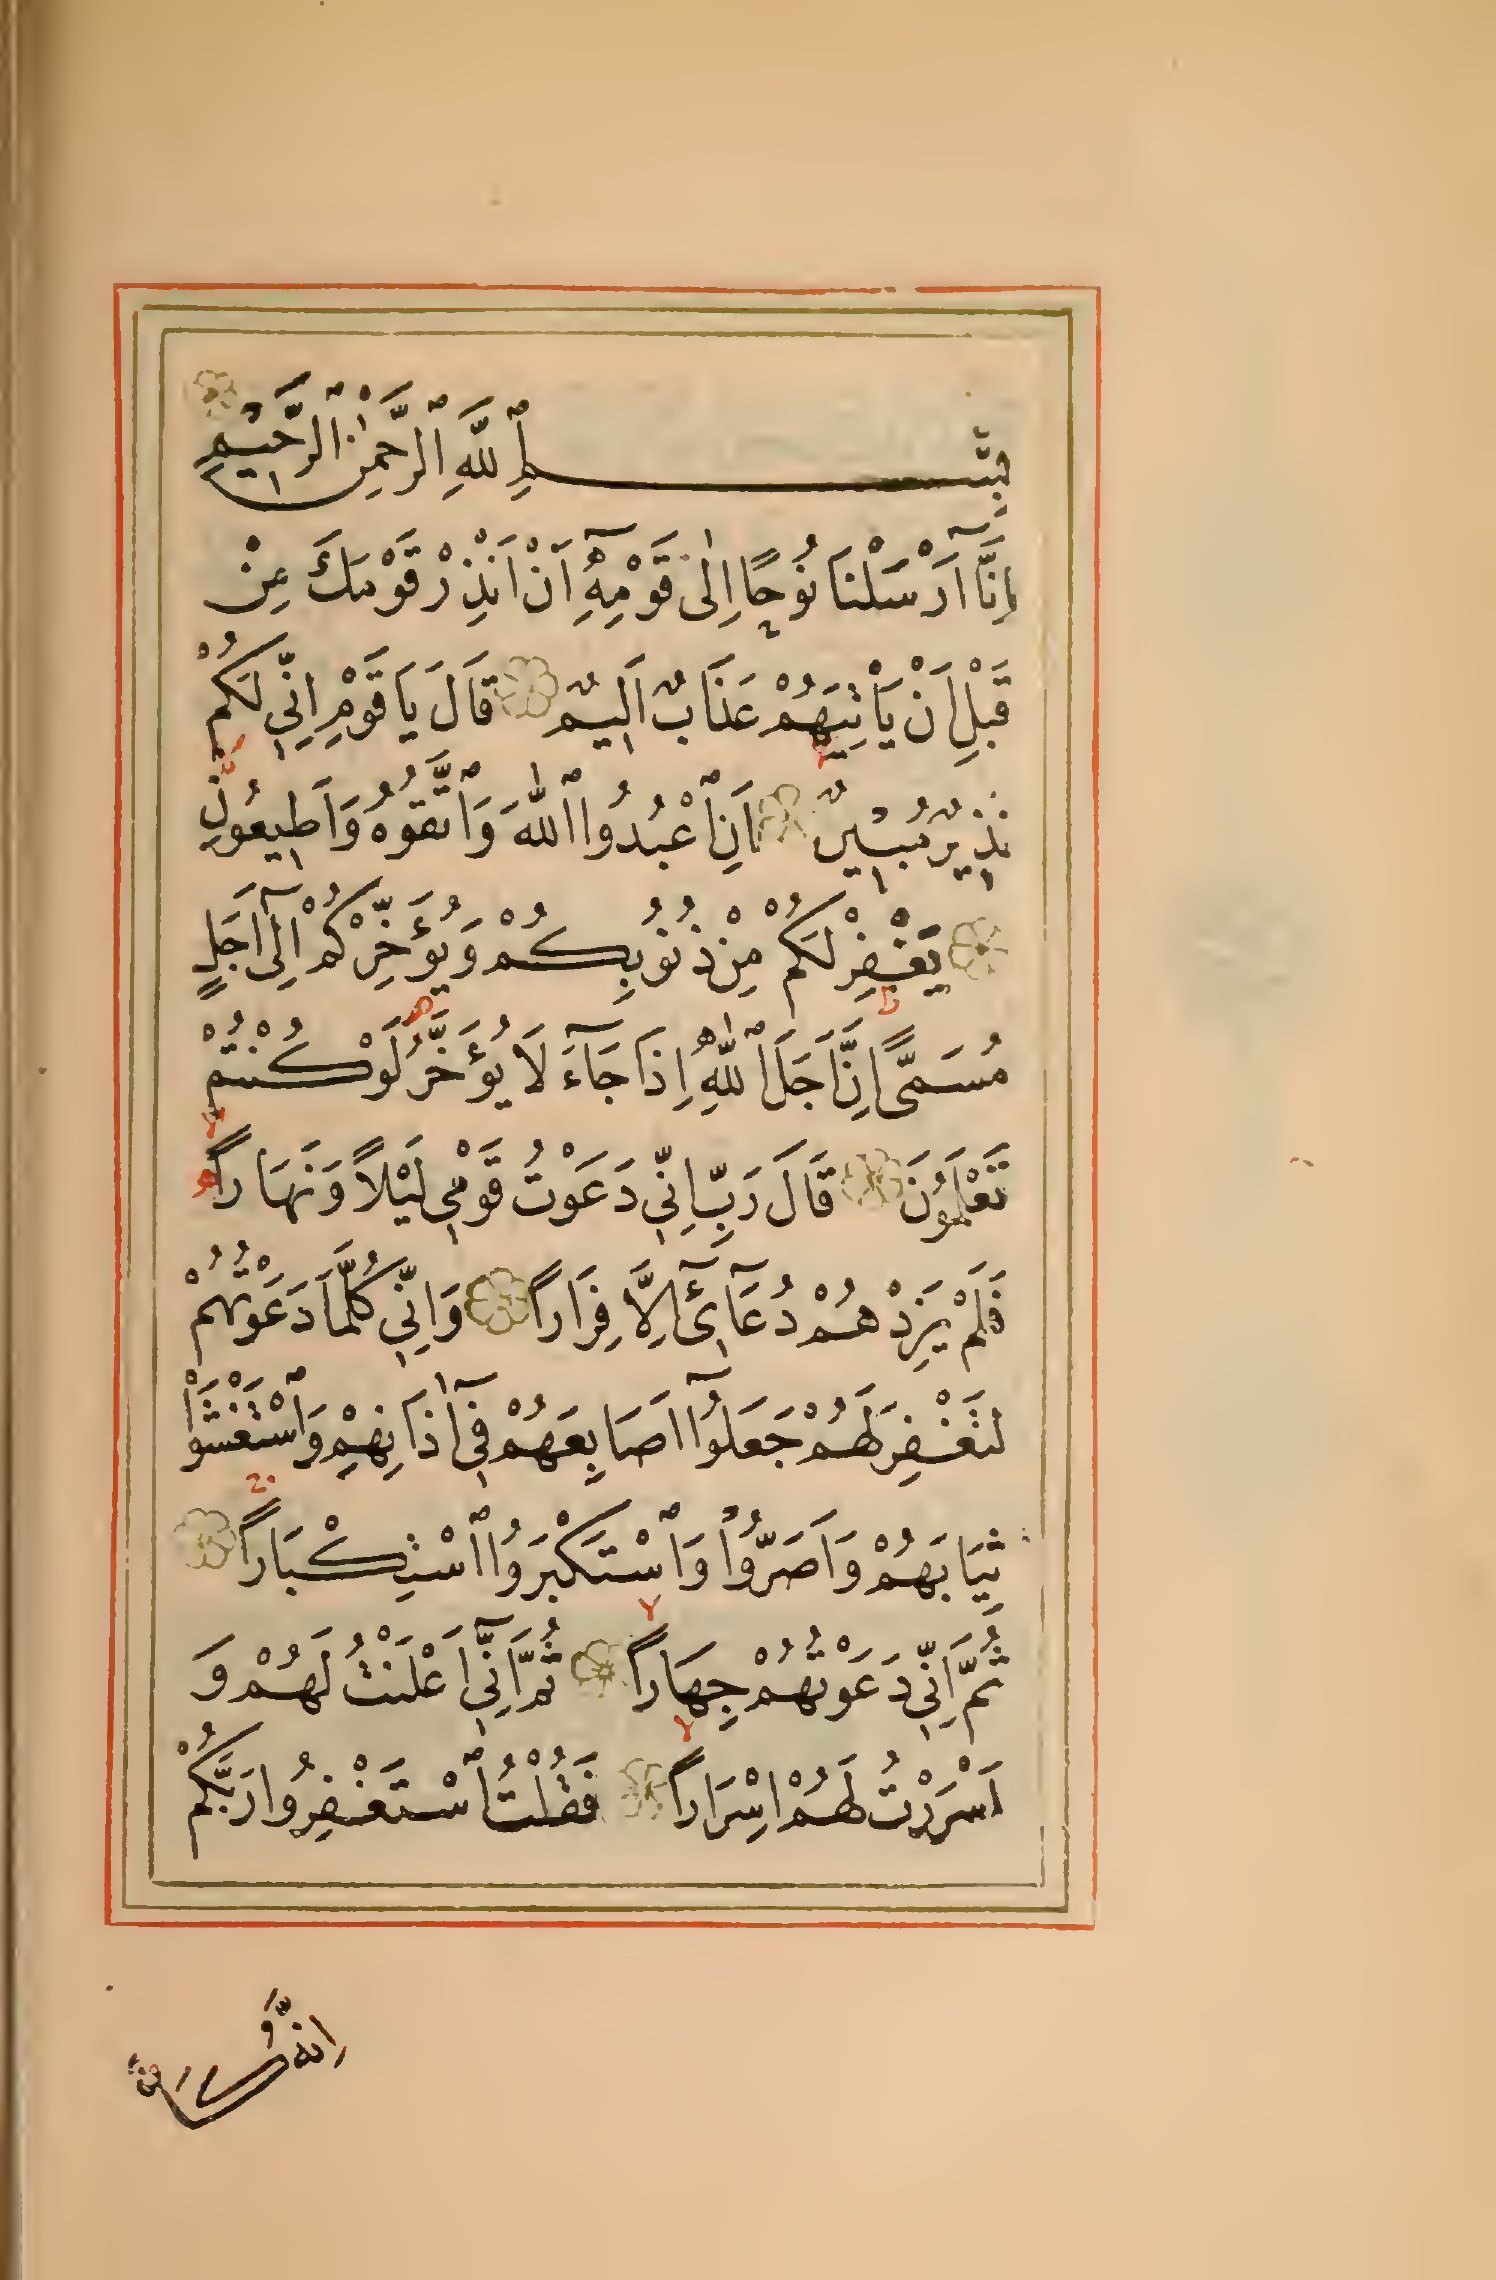 بِسْمِ ٱللَّهِ ٱلرَّحْمٰنِ ٱلرَّحِيمِ
اِنَّٓا اَرْسَلْنَا نُوحًا اِلٰى قَوْمِهٓ اَنْ اَنْذِرْ قَوْمَكَ مِنْ
قَبْلِ اَنْ يَأْتِيَهُمْ عَذَابٌ اَلِيمٌ قَالَ يَا قَوْمِ اِنِّي لَكُمْ
نَذِيرٌ مُبِينٌ اَنِ ٱعْبُدُوا ٱللّٰهَ وَٱتَّقُوهُ وَاَطِيعُونِ
يَغْفِرْ لَكُمْ مِنْ ذُنُوبِكُمْ وَيُؤَخِّرْكُمْ اِلٰٓى اَجَلٍ
مُسَمًّى اِنَّ اَجَلَ ٱللّٰهِ اِذَا جَآءَ لَا يُؤَخَّرُ لَوْ كُنْتُمْ
تَعْلَمُونَ قَالَ رَبِّ اِنِّي دَعَوْتُ قَوْمِي لَيْلًا وَنَهَارًا
فَلَمْ يَزِدْهُمْ دُعَآئِٓي اِلَّا فِرَارًا وَاِنِّي كُلَّمَا دَعَوْتُهُمْ
لِتَغْفِرَ لَهُمْ جَعَلُوٓا اَصَابِعَهُمْ فِٓي اٰذَانِهِمْ وَٱسْتَغْشَوْا
ثِيَابَهُمْ وَاَصَرُّوا وَٱسْتَكْبَرُوا ٱسْتِكْبَارًا
ثُمَّ اِنِّي دَعَوْتُهُمْ جِهَارًا ثُمَّ اِنِّٓي اَعْلَنْتُ لَهُمْ وَ
اَسْرَرْتُ لَهُمْ اِسْرَارًا فَقُلْتُ ٱسْتَغْفِرُوا رَبَّكُمْ
اِنَّهُ كَانَ